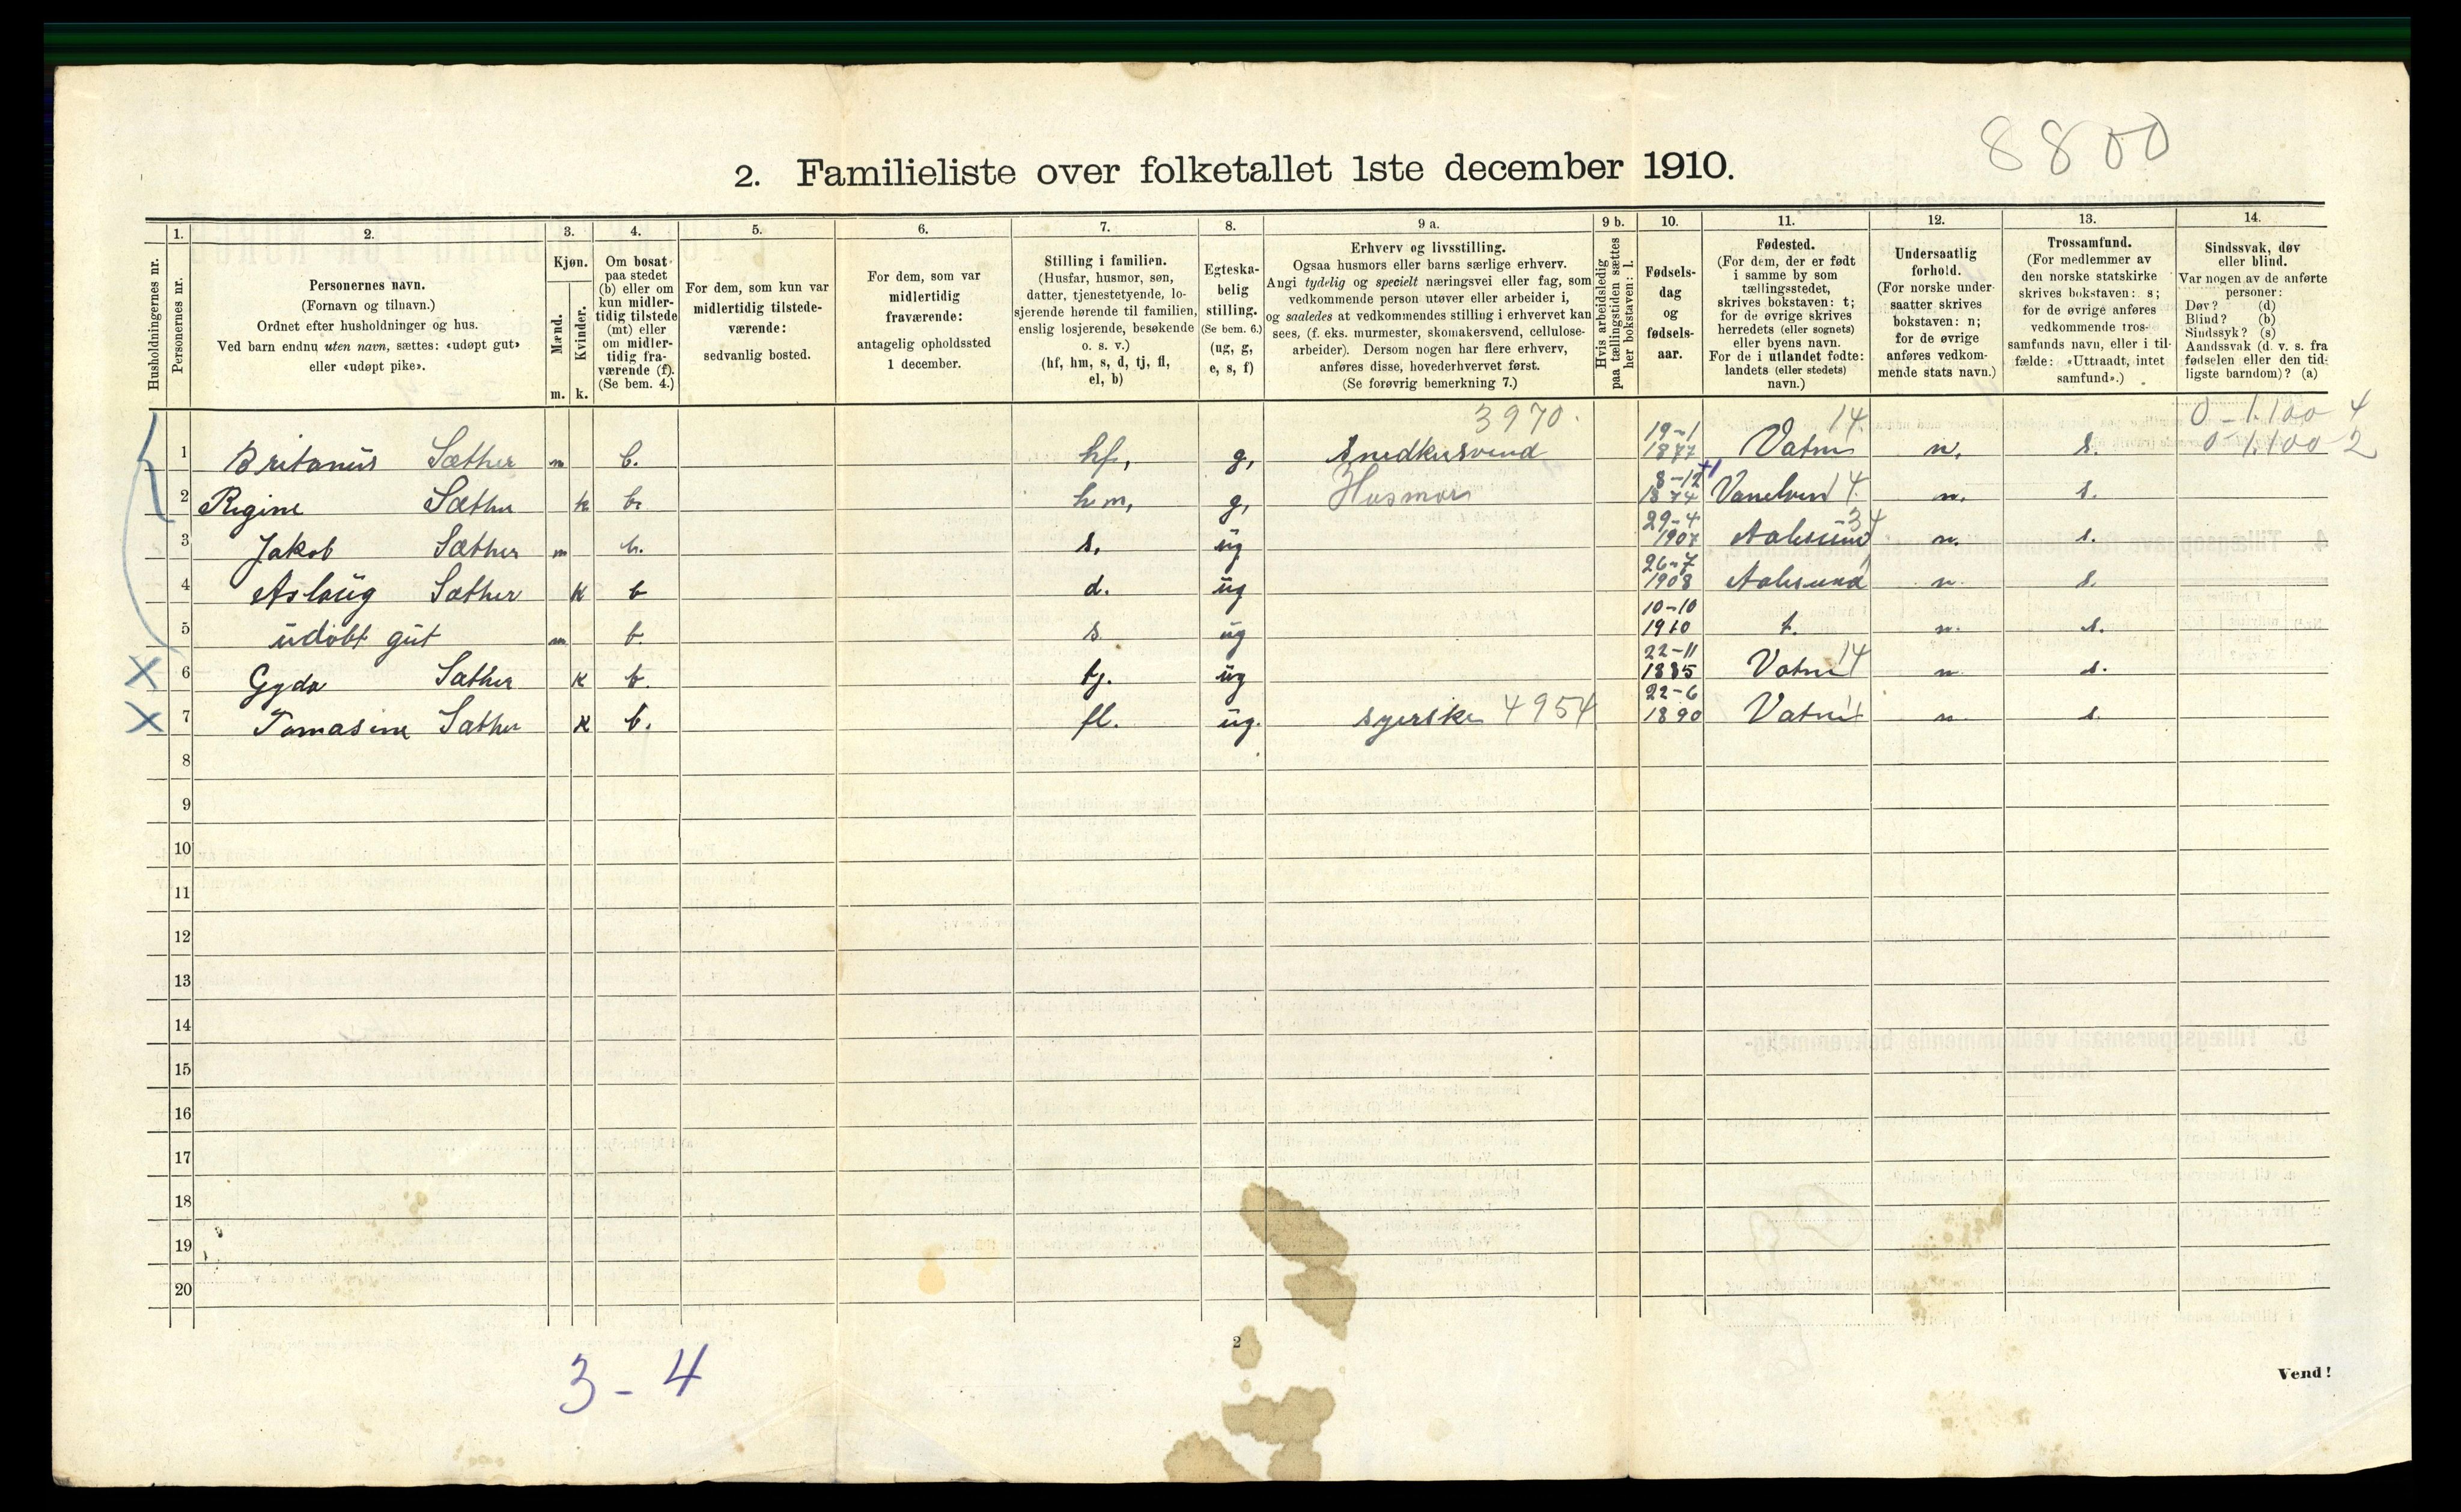 8800
2. Familieliste over folketallet 1ste december 1910.
Husholdningernes nr.
1. Personernes nr.
2. Personernes navn.
(Fornavn og tilnavn.)
Ordnet efter husholdninger og hus.
Ved barn endnu uten navn, sættes: «udøpt gut»
eller «udøpt pike».
3. Kjøn.
Mænd. m.
Kvinder. k.
4. Om bosat
paa stedet
(b) eller om
kun midler-
tidig tilstede
(mt) eller
om midler-
tidig fra-
værende (f).
(Se bem. 4.)
5. For dem, som kun var
midlertidig tilstede-
værende:
sedvanlig bosted.
6. For dem, som var
midlertidig
fraværende:
antagelig opholdssted
1 december.
7. Stilling i familien.
(Husfar, husmor, søn,
datter, tjenestetyende, lo-
sjerende hørende til familien,
enslig losjerende, besøkende
o. s. v.)
(hf, hm, s, d, tj, fl,
el, b)
8. Egteska-
belig
stilling.
(Se bem. 6.)
(ug, g,
e, s, f)
9 a. Erhverv og livsstilling.
Ogsaa husmors eller barns særlige erhverv.
Angi tydelig og specielt næringsvei eller fag, som
vedkommende person utøver eller arbeider i,
og saaledes at vedkommendes stilling i erhvervet kan
sees, (f. eks. murmester, skomakersvend, cellulose-
arbeider). Dersom nogen har flere erhverv,
anføres disse, hovederhvervet først.
(Se forøvrig bemerkning 7.)
9 b. Hvis arbeidsledig
paa tællingstiden sættes
her bokstaven: l.
10. Fødsels-
dag
og
fødsels-
aar.
11. Fødested.
(For dem, der er født
i samme by som
tællingsstedet,
skrives bokstaven: t;
for de øvrige skrives
herredets (eller sognets)
eller byens navn.
For de i utlandet fødte:
landets (eller stedets)
navn.)
12. Undersaatlig
forhold.
(For norske under-
saatter skrives
bokstaven: n;
for de øvrige
anføres vedkom-
mende stats navn.)
13. Trossamfund.
(For medlemmer av
den norske statskirke
skrives bokstaven: s;
for de øvrige anføres
vedkommende tros-
samfunds navn, eller i til-
fælde: «Uttraadt, intet
samfund».)
14. Sindssvak, døv
eller blind.
Var nogen av de anførte
personer:
Døv? (d)
Blind? (b)
Sindssyk? (s)
Aandssvak (d. v. s. fra
fødselen eller den tid-
ligste barndom)? (a)
3970. 14. 0-1.100 4
0-1.100 2
1 Britanus Sæther m b. hf, g, Snedkersvend 19-1 1877 Vatne n. s.
2 Regine Sæther k b. hm, g, Husmor 8-12 1874 Vanelven 14. n. s.
3 Jakob Sæther m b. s. ug 29-4 1907 Aalesund 34 n. s.
4 Aslaug Sæther k b d. ug 26-7 1908 Aalesund n. s.
5 udøbt gut m b. s ug 10-10 1910 t. n. s.
X 6 Gyda Sæther k b. tj. ug 22-11 1885 Vatne 14 n. s.
X 7 Tomasine Sæther k b. fl. ug. syerske 4954 22-6 1890 Vatne n. s.
8
9
10
11
12
13
14
15
16
17
18
19
20
2
3-4
Vend!